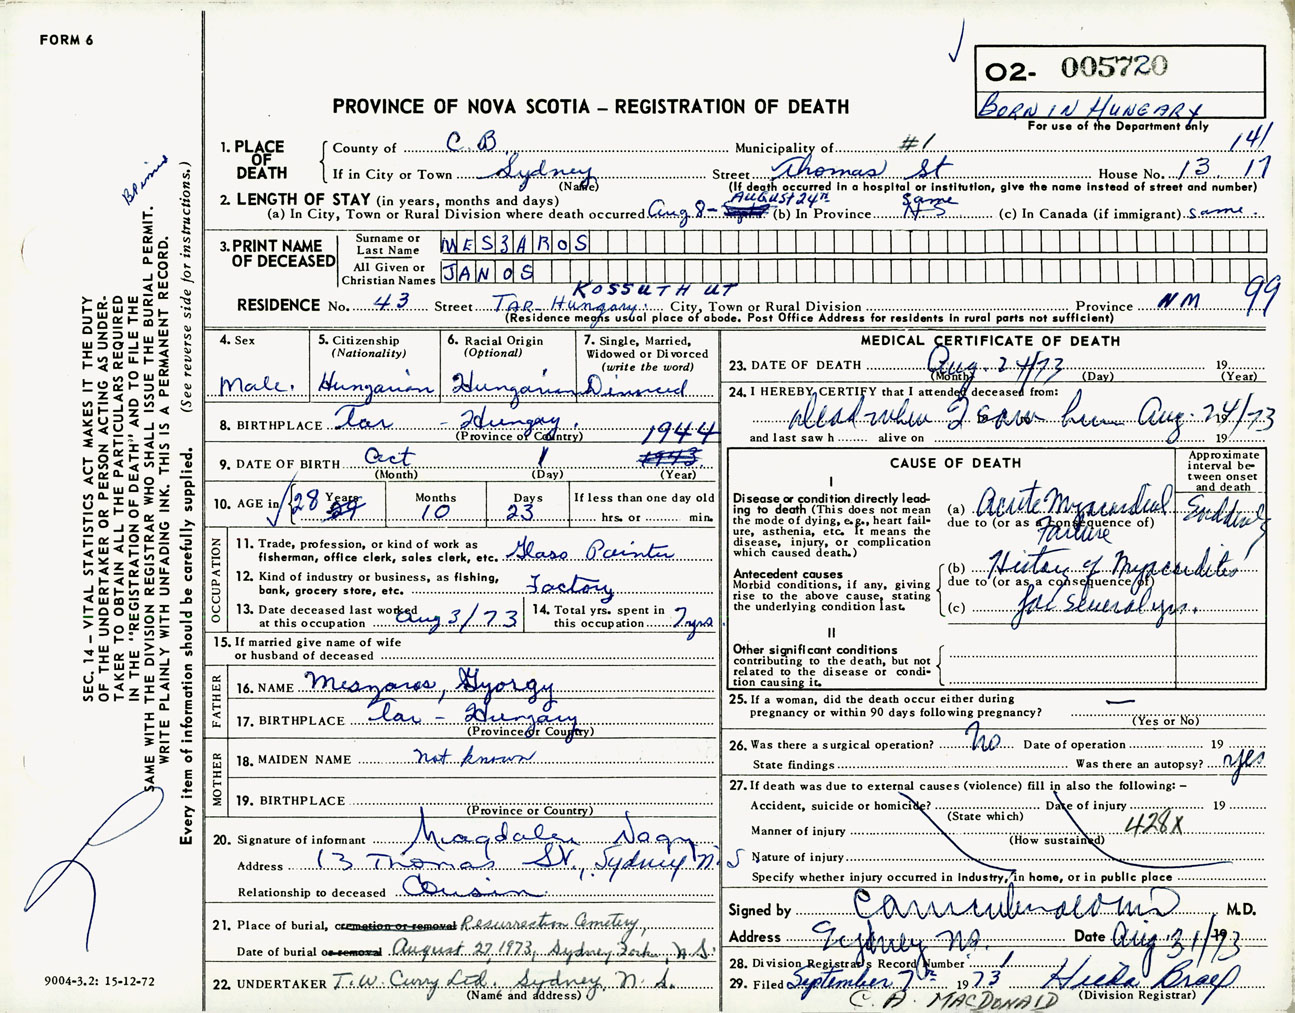 FORM 6
O2- 005720
BORN IN HUNGARY
For use of the Department only
PROVINCE OF NOVA SCOTIA – REGISTRATION OF DEATH
1. PLACE OF DEATH
County of C.B. Municipality of #1 141
If in City or Town Sydney Street Thomas St House No. 13 17
(Name) (If death occurred in a hospital or institution, give the name instead of street and number)
2. LENGTH OF STAY (in years, months and days)
(a) In City, Town or Rural Division where death occurred Aug 8 - AUGUST 24th (b) In Province same (c) In Canada (if immigrant) same.
3. PRINT NAME OF DECEASED
Surname or Last Name MESZAROS
All Given or Christian Names JANOS
KOSSUTH UT
RESIDENCE No. 43 Street TAR - Hungary. City, Town or Rural Division Province NM 99
(Residence means usual place of abode. Post Office Address for residents in rural parts not sufficient)
4. Sex
Male.
5. Citizenship (Nationality)
Hungarian
6. Racial Origin (Optional)
Hungarian
7. Single, Married, Widowed or Divorced (write the word)
Divorced
8. BIRTHPLACE Tar - Hungary.
(Province or Country)
1944
9. DATE OF BIRTH Oct 1 1943.
(Month) (Day) (Year)
10. AGE in 28 Years 29 Months 10 Days 23 If less than one day old
hrs. or min.
OCCUPATION
11. Trade, profession, or kind of work as fisherman, office clerk, sales clerk, etc. Glass Painter
12. Kind of industry or business, as fishing, bank, grocery store, etc. Factory
13. Date deceased last worked at this occupation Aug 3/73
14. Total yrs. spent in this occupation 7 yrs
15. If married give name of wife or husband of deceased
FATHER
16. NAME Meszaros, Gyorgy
17. BIRTHPLACE Tar - Hungary
(Province or Country)
MOTHER
18. MAIDEN NAME not known
19. BIRTHPLACE
(Province or Country)
20. Signature of informant Magdalen Nagy
Address 13 Thomas St., Sydney N.S
Relationship to deceased Cousin
21. Place of burial, cremation or removal Resurrection Cemetery,
Date of burial or removal August 27, 1973, Sydney Forks, N.S.
22. UNDERTAKER T.W. Curry Ltd. Sydney, N.S.
(Name and address)
MEDICAL CERTIFICATE OF DEATH
23. DATE OF DEATH Aug. 24/73 19
(Month) (Day) (Year)
24. I HEREBY CERTIFY that I attended deceased from:
Dead when I saw him Aug. 24/73 19
and last saw h alive on 19
CAUSE OF DEATH
Approximate interval between onset and death
I
Disease or condition directly leading to death (This does not mean the mode of dying, e.g., heart failure, asthenia, etc. It means the disease, injury, or complication which caused death.)
(a) Acute Myocardial Failure Suddenly
due to (or as a consequence of)
Antecedent causes
Morbid conditions, if any, giving rise to the above cause, stating the underlying condition last.
(b) History of Myocarditis
due to (or as a consequence of)
(c) for several yrs.
II
Other significant conditions contributing to the death, but not related to the disease or condition causing it.
25. If a woman, did the death occur either during pregnancy or within 90 days following pregnancy? —
(Yes or No)
26. Was there a surgical operation? No Date of operation 19
State findings Was there an autopsy? yes
27. If death was due to external causes (violence) fill in also the following: –
Accident, suicide or homicide? Date of injury 19
(State which)
Manner of injury 428X
(How sustained)
Nature of injury
Specify whether injury occurred in Industry, in home, or in public place
Signed by M.D.
Address Sydney NS. Date Aug 31/73 19
28. Division Registrar's Record Number 1
29. Filed September 7th 1973 Hilda
(Division Registrar)
C. A. MACDONALD
SEC. 14 – VITAL STATISTICS ACT MAKES IT THE DUTY
OF THE UNDERTAKER OR PERSON ACTING AS UNDER-
TAKER TO OBTAIN ALL THE PARTICULARS REQUIRED
IN THE "REGISTRATION OF DEATH" AND TO FILE THE
SAME WITH THE DIVISION REGISTRAR WHO SHALL ISSUE THE BURIAL PERMIT.
WRITE PLAINLY WITH UNFADING INK. THIS IS A PERMANENT RECORD.
Every item of information should be carefully supplied. (See reverse side for instructions.)
9004-3.2: 15-12-72